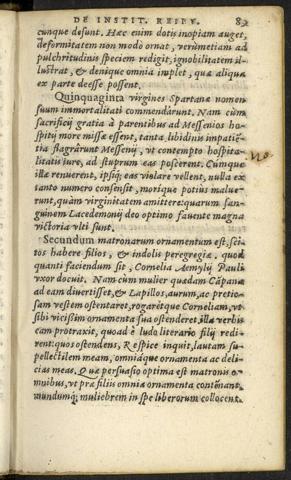 DE INSTIT. REIPV. 83
cunque desunt. Hæc enim dotis inopiam auget,
deformitatem non modò ornat, verùmetiam ad
pulchritudinis speciem redigit, ignobilitatem il-
lustrat, & denique omnia implet, quæ aliqua
ex parte deesse possent.
Quinquaginta virgines Spartanæ nomen
suum immortalitati commendârunt. Nam cùm
sacrificij gratia à parentibus ad Messenios ho-
spitij more missæ essent, tanta, libidinis impatiẽ-
tia flagrârunt Messenij, vt contempto hospita-
litatis iure, ad stuprum eas poscerent. Cúmque
illæ renuerent, ipsiq; eas violare vellent, nulla ex
tanto numero consensit, moriq́ue potiùs malue-
runt, quàm virginitatem amittere: quarum san-
guinem Lacedemonij deo optimo fauente magna
victoria vlti sunt.
Secundum matronarum ornamentum est, sci-
tos habere filios, & indolis peregregiæ. quod
quanti faciendum sit, Cornelia Aemylij Pauli
vxor docuit. Nam cùm mulier quædam Cãpana
ad eam diuertisset, & Lapillos, aurum, ac pretio-
sam vestem ostentaret, rogarétque Corneliam, vt
sibi vicissim ornamenta sua ostenderet, illa verbis
eam protraxit, quoad è ludo literario filij redi-
rent: quos ostendens, Respice inquit, lautam su-
pellectilem meam, omniáque ornamenta ac deli-
cias meas. Quæ persuasio optima est matronis o-
mnibus, vt præ filiis omnia ornamenta contẽnant,
mundumq; muliebrem in spe liberorum collocent.